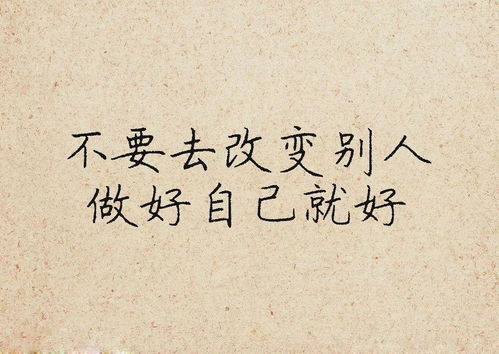 不要去改变别人
做好自己就好